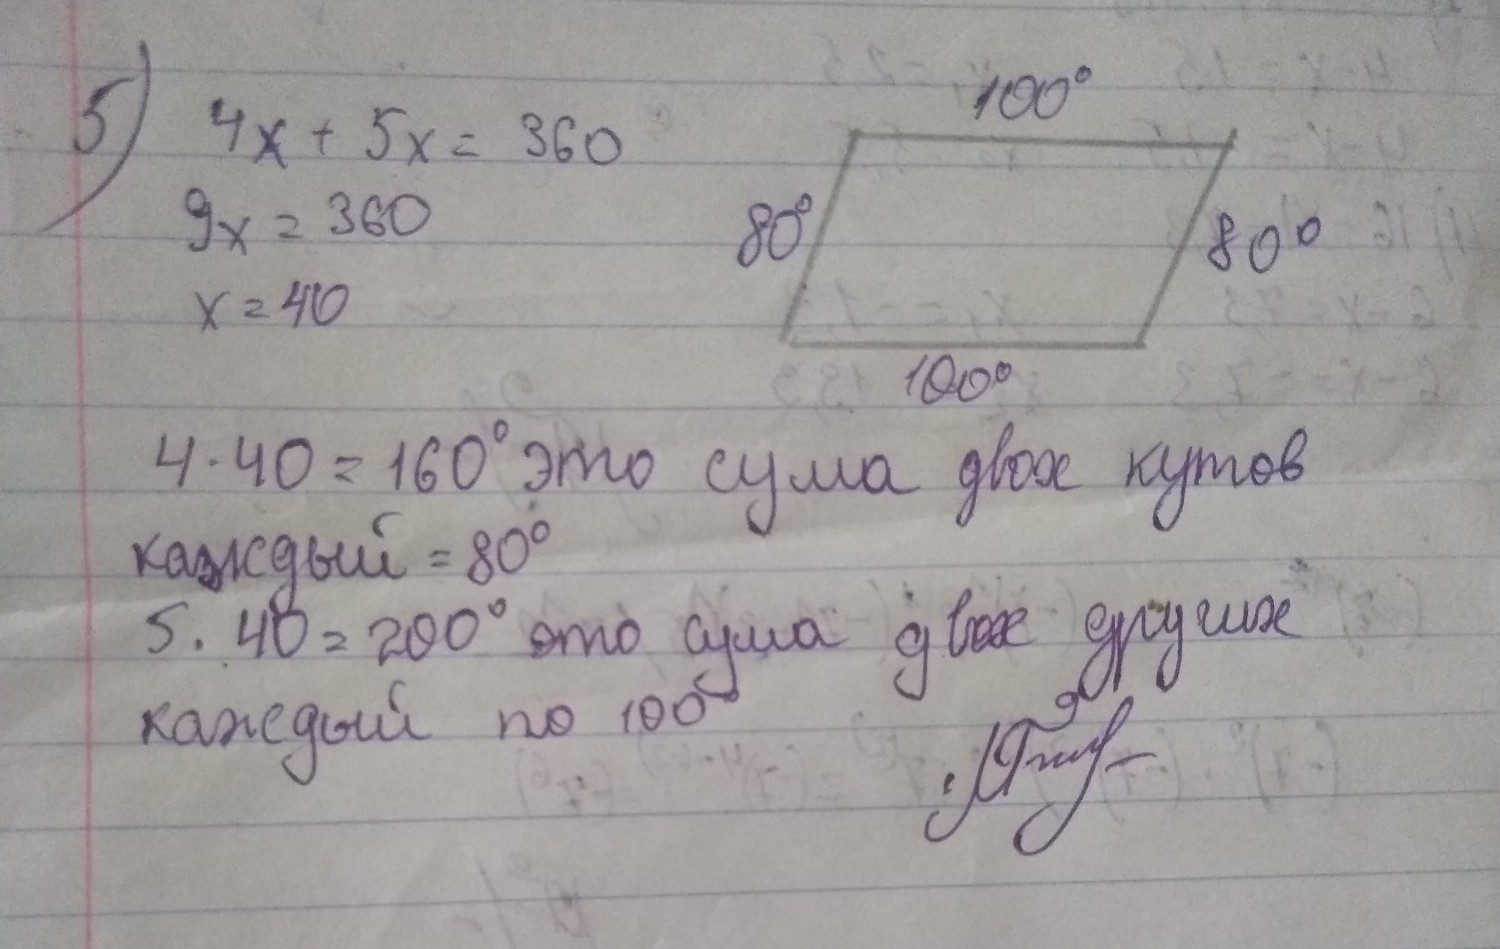 5)
4x + 5x = 360
9x = 360
x = 40
100°
80°
80°
100°
4·40 = 160° это сума двох кутов
каждый = 80°
5·40 = 200° это сума двох других
каждый по 100°